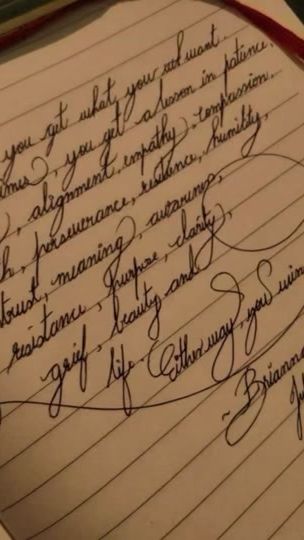 you get what you ask want.
you get a lesson in patience,
alignment, empathy, compassion,
perseverance, resistance, humility,
trust, meaning, awareness,
resistance, purpose, clarity,
grief, beauty and
life. Either way, you win
~ Brianna